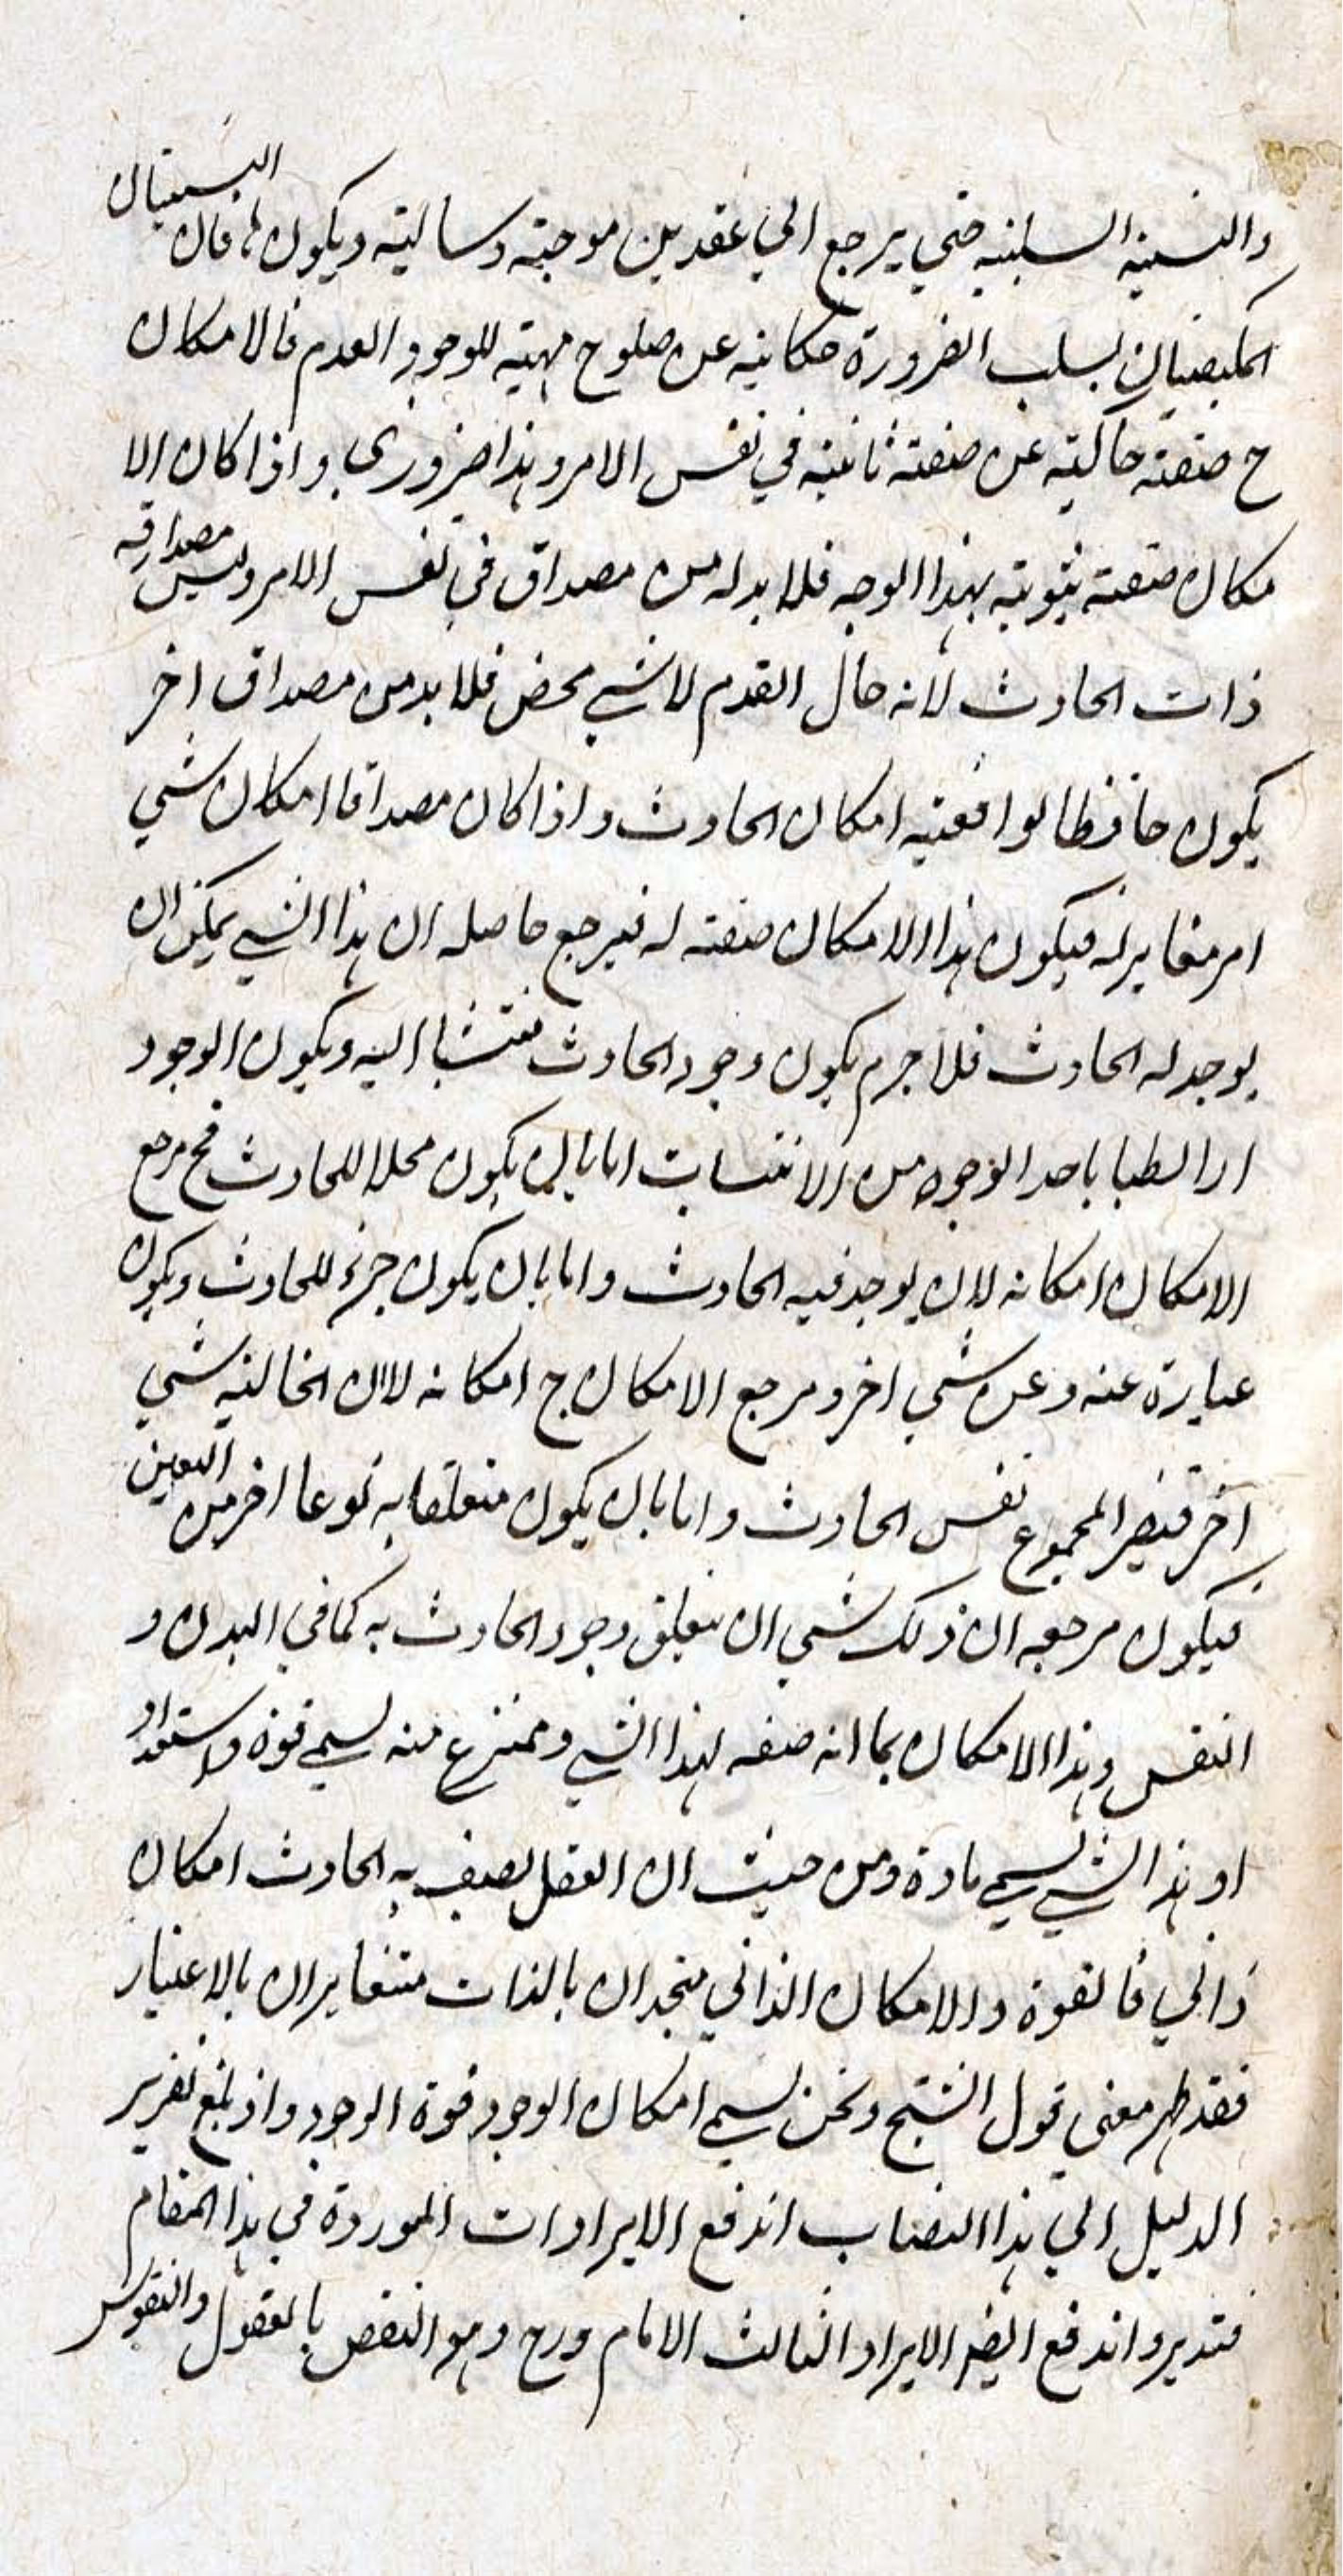 والنسبة السلبية حتي يرجع الي عقدين موجبة وسالبة ويكون هاتان النسبتان
المكيفتان بسلب الضرورة حكاية عن صلوح مهية للوجود والعدم فالامكان
ح صفة حاكية عن صفة ثابتة في نفس الامر وهذا ضروري واذا كان الا
مكان صفة ثبوتية بهذا الوجه فلا بد له من مصداق في نفس الامر وليس مصداقه
ذات الحادث لانه حال القدم لا شي محض فلا بد من مصداق اخر
يكون حافظا لواقعية امكان الحادث واذا كان مصداقا امكان شي
امر مغاير له فيكون هذا الامكان صفة له فيرجع حاصله ان هذا الشي يمكن ان
يوجد له الحادث فلا جرم يكون وجود الحادث منتسبا اليه ويكون الوجود
ارابطيا باحد الوجوه من الانتسابات اما بان يكون محلا للحادث فح مرجع
الامكان امكانه لان يوجد فيه الحادث واما بان يكون جزء للحادث ويكون
عبارة عنه وعن شي اخر ومرجع الامكان ح امكانه لان شي
آخر فيصير المجموع نفس الحادث واما بان يكون متعلقا به نوعا اخر من
فيكون مرجعه ان ذلك شي ان يتعلق وجود الحادث به كما في البدن و
النفس وهذا الامكان بما انه صفه لهذا الشي ومنتزع منه يسمي قوة واستعداد
او هذا الشي يسمي مادة ومن حيث ان العقل يصف به الحادث امكان
ذاتي فالقوة والامكان الذاتي متحدان بالذات متغايران بالاعتبار
فقد ظهر معني قول الشيخ ونحن نسمي امكان الوجود قوة الوجود واذ بلغ تقرير
الدليل الي هذا النصاب اندفع الايرادات الموردة في هذا المقام
فتدبر واندفع ايضا الايراد الثالث الامام ورح وهو النقض بالعقول والنفوس